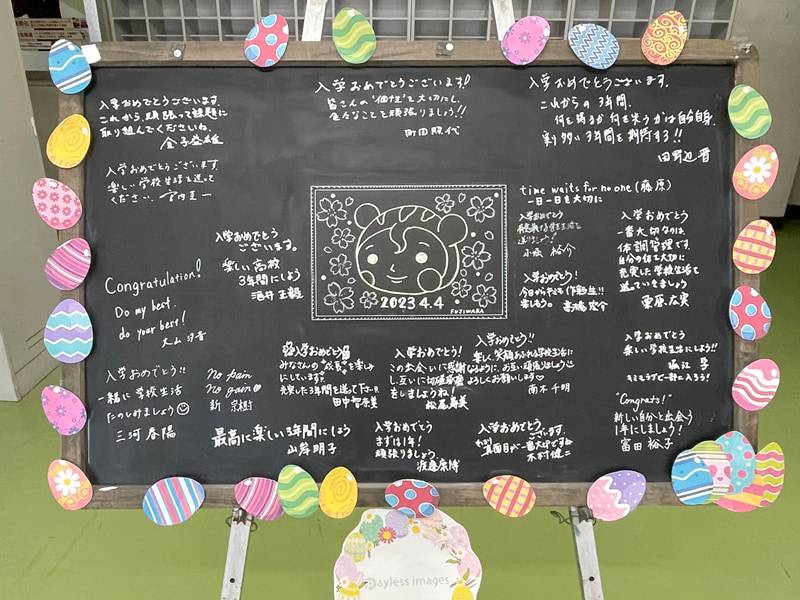 入学おめでとうございます。
これから、頑張って課題に
取り組んでくださいね。
入学おめでとうございます!
皆さんの"個性"を大切にし、
色々なことを頑張りましょう!!
町田照代
入学おめでとうございます。
これからの3年間、
何を得るか何を失うかは自分自身。
実り多い3年間を期待する!!
入学おめでとうございます
楽しい学校生活を送って
ください。
time waits for no one (藤原)
一日一日を大切に
入学おめでとう
小坂 裕介
入学おめでとう!
高橋宏介
入学おめでとう
一番大切なのは、
体調管理です。
自分の体を大切に
充実した学校生活を
送っていきましょう
栗原広実
入学おめでとう
ございます。
楽しい高校
3年間にしよう
酒井正毅
2023.4.4
FUJIWARA
Congratulation!
Do my best.
do your best!
入学おめでとう!!
一緒に学校生活
たのしみましょう
三河春陽
No pain
No gain
新 京樹
最高に楽しい3年間にしよう
山岸明子
入学おめでとう
みなさんの"成長"を楽しみ
にしています
充実した3年間を送って下さい!!
田中智奈美
入学おめでとう!
この出会いに感謝
し、互いに切磋琢磨
をしましょうね!
松尾寿美
入学おめでとう!!
楽しく、笑顔あふれる学校生活に
なるように、お互い頑張りましょう
よろしくお願いします
南木千明
入学おめでとう
まずは1年!
頑張りましょう。
渡慶原博
入学おめでとう
ございます。
真面目が一番大切ですね
木村健二
入学おめでとう
楽しい学校生活にしよう!!
"Congrats!"
新しい自分と出会う
1年にしましょう!
富田裕子
Payless images